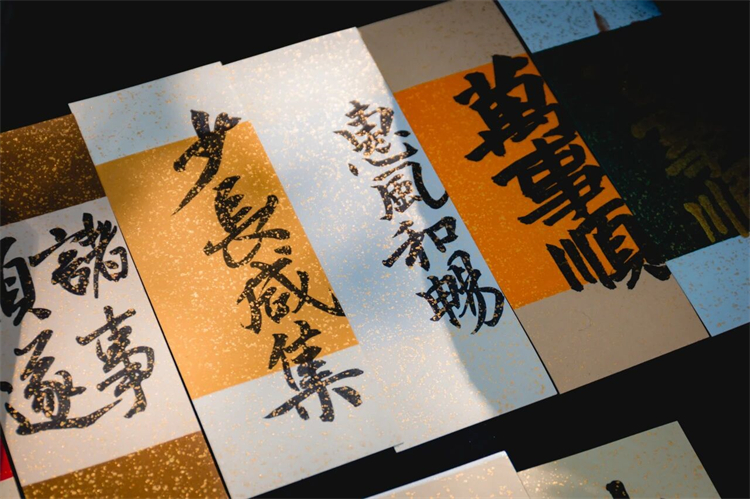 諸事
順遂
少長咸集
惠風和暢
萬事順